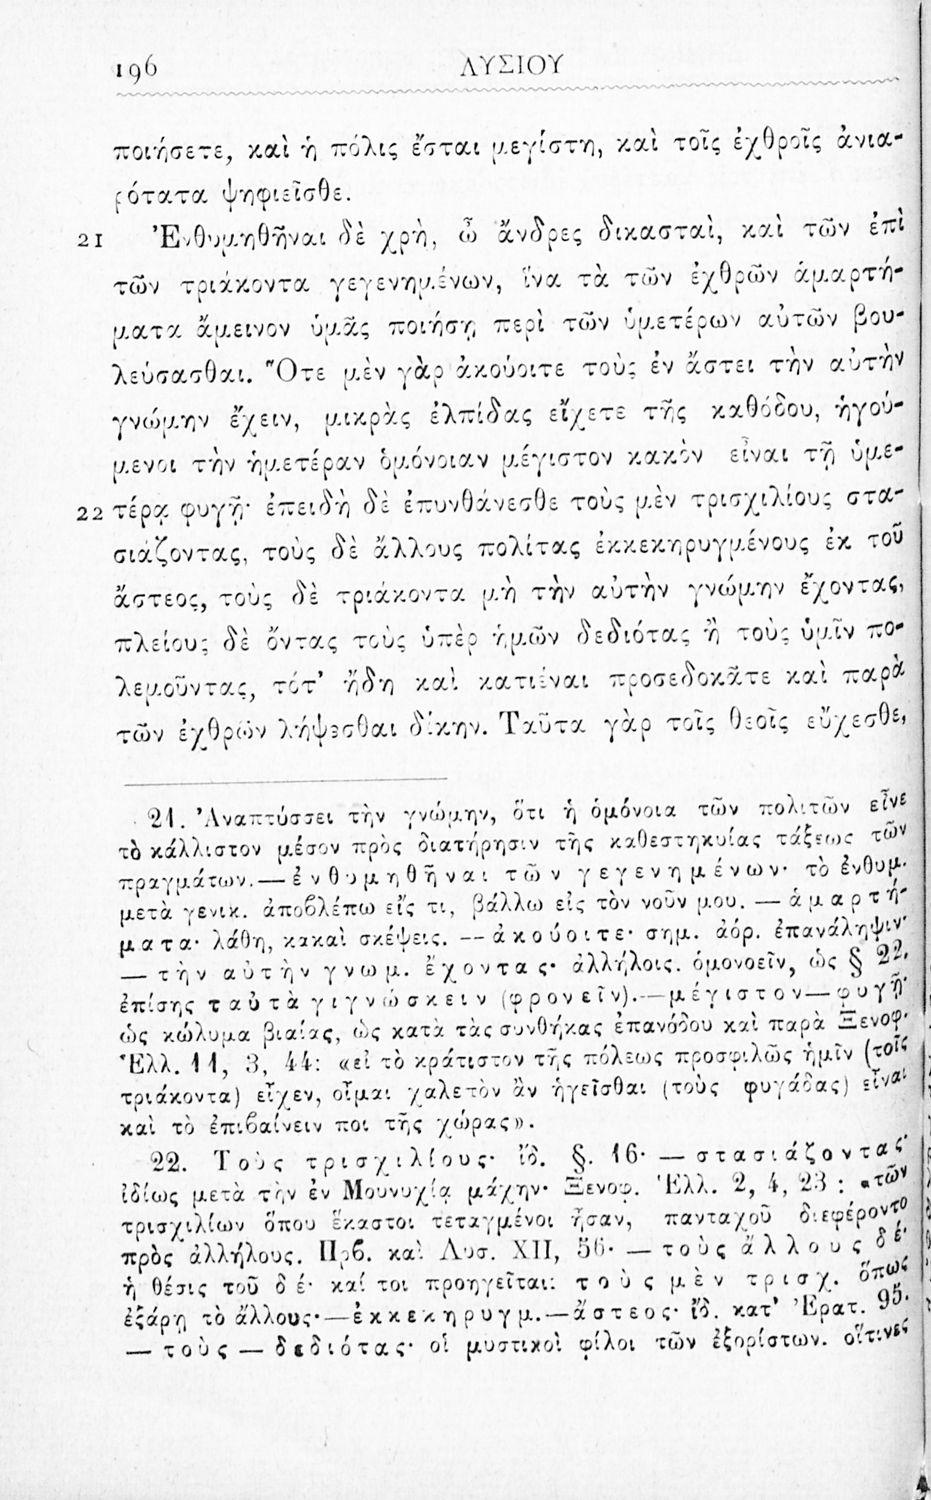 196 ΛΥΣΙΟΥ
ποιήσετε, καὶ ἡ πόλις ἔσται μεγίστη, καὶ τοῖς ἐχθροῖς ἀνια-
ρότατα ψηφιεῖσθε.
21 Ἐνθυμηθῆναι δὲ χρὴ, ὦ ἄνδρες δικασταὶ, καὶ τῶν ἐπὶ
τῶν τριάκοντα γεγενημένων, ἵνα τὰ τῶν ἐχθρῶν ἁμαρτή-
ματα ἄμεινον ὑμᾶς ποιήσῃ περὶ τῶν ὑμετέρων αὐτῶν βου-
λεύσασθαι. Ὅτε μὲν γὰρ ἀκούοιτε τοὺς ἐν ἄστει τὴν αὐτὴν
γνώμην ἔχειν, μικρὰς ἐλπίδας εἴχετε τῆς καθόδου, ἡγού-
μενοι τὴν ἡμετέραν ὁμόνοιαν μέγιστον κακὸν εἶναι τῇ ὑμε-
22 τέρᾳ φυγῇ· ἐπειδὴ δὲ ἐπυνθάνεσθε τοὺς μὲν τρισχιλίους στα-
σιάζοντας, τοὺς δὲ ἄλλους πολίτας ἐκκεκηρυγμένους ἐκ τοῦ
ἄστεος, τοὺς δὲ τριάκοντα μὴ τὴν αὐτὴν γνώμην ἔχοντας,
πλείους δὲ ὄντας τοὺς ὑπὲρ ἡμῶν δεδιότας ἢ τοὺς ὑμῖν πο-
λεμοῦντας, τότ’ ἤδη καὶ κατιέναι προσεδοκᾶτε καὶ παρὰ
τῶν ἐχθρῶν λήψεσθαι δίκην. Ταῦτα γὰρ τοῖς θεοῖς εὔχεσθε,
21. Ἀναπτύσσει τὴν γνώμην, ὅτι ἡ ὁμόνοια τῶν πολιτῶν εἶνε
τὸ κάλλιστον μέσον πρὸς διατήρησιν τῆς καθεστηκυίας τάξεως τῶν
πραγμάτων.—ἐνθυμηθῆναι τῶν γεγενημένων· τὸ ἐνθυμ.
μετὰ γενικ. ἀποβλέπω εἴς τι, βάλλω εἰς τὸν νοῦν μου. — ἁμαρτή-
ματα· λάθη, κακαὶ σκέψεις. — ἀκούοιτε· σημ. ἀόρ. ἐπανάληψιν·
— τὴν αὐτὴν γνωμ. ἔχοντας· ἀλλήλοις. ὁμονοεῖν, ὡς § 22.
ἐπίσης ταὐτὰ γιγνώσκειν (φρονεῖν).—μέγιστον—φυγῇ·
ὡς κώλυμα βιαίας, ὡς κατὰ τὰς συνθήκας ἐπανόδου καὶ παρὰ Ξενοφ.
Ἑλλ. 11, 3, 44: «εἰ τὸ κράτιστον τῆς πόλεως προσφιλῶς ἡμῖν (τοῖς
τριάκοντα) εἶχεν, οἶμαι χαλετὸν ἂν ἡγεῖσθαι (τοὺς φυγάδας) εἶναι
καὶ τὸ ἐπιβαίνειν ποι τῆς χώρας».
22. Τοὺς τρισχιλίους· ἴδ. §. 16· — στασιάζοντας·
ἰδίως μετὰ τὴν ἐν Μουνυχίᾳ μάχην· Ξενοφ. Ἑλλ. 2, 4, 23 : «τῶν
τρισχιλίων ὅπου ἕκαστοι τεταγμένοι ἦσαν, πανταχοῦ διεφέροντο
πρὸς ἀλλήλους. Πρβ. καὶ Λυσ. XII, 56· — τοὺς ἄλλους δέ·
ἡ θέσις τοῦ δέ· καί τοι προηγεῖται: τοὺς μὲν τρισχ. ὅπως
ἐξάρῃ τὸ ἄλλους·—ἐκκεκηρυγμ.—ἄστεος· ἴδ. κατ’ Ἐρατ. 95.
— τοὺς — δεδιότας· οἱ μυστικοὶ φίλοι τῶν ἐξορίστων. οἵτινες